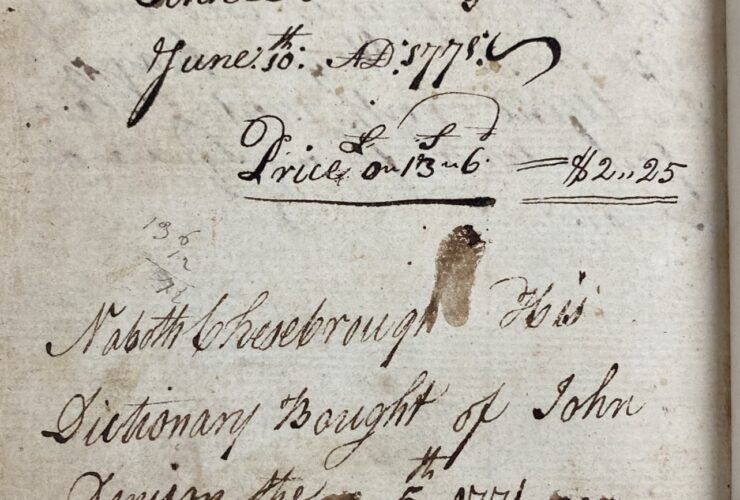 June: 10th: AD: 1771:
Price £0 „ 13s „ 6d. = $2 „ 25
13 6
12
Naboth Chesebrough His
Dictionary Bought of John
Denison the 5th 1771